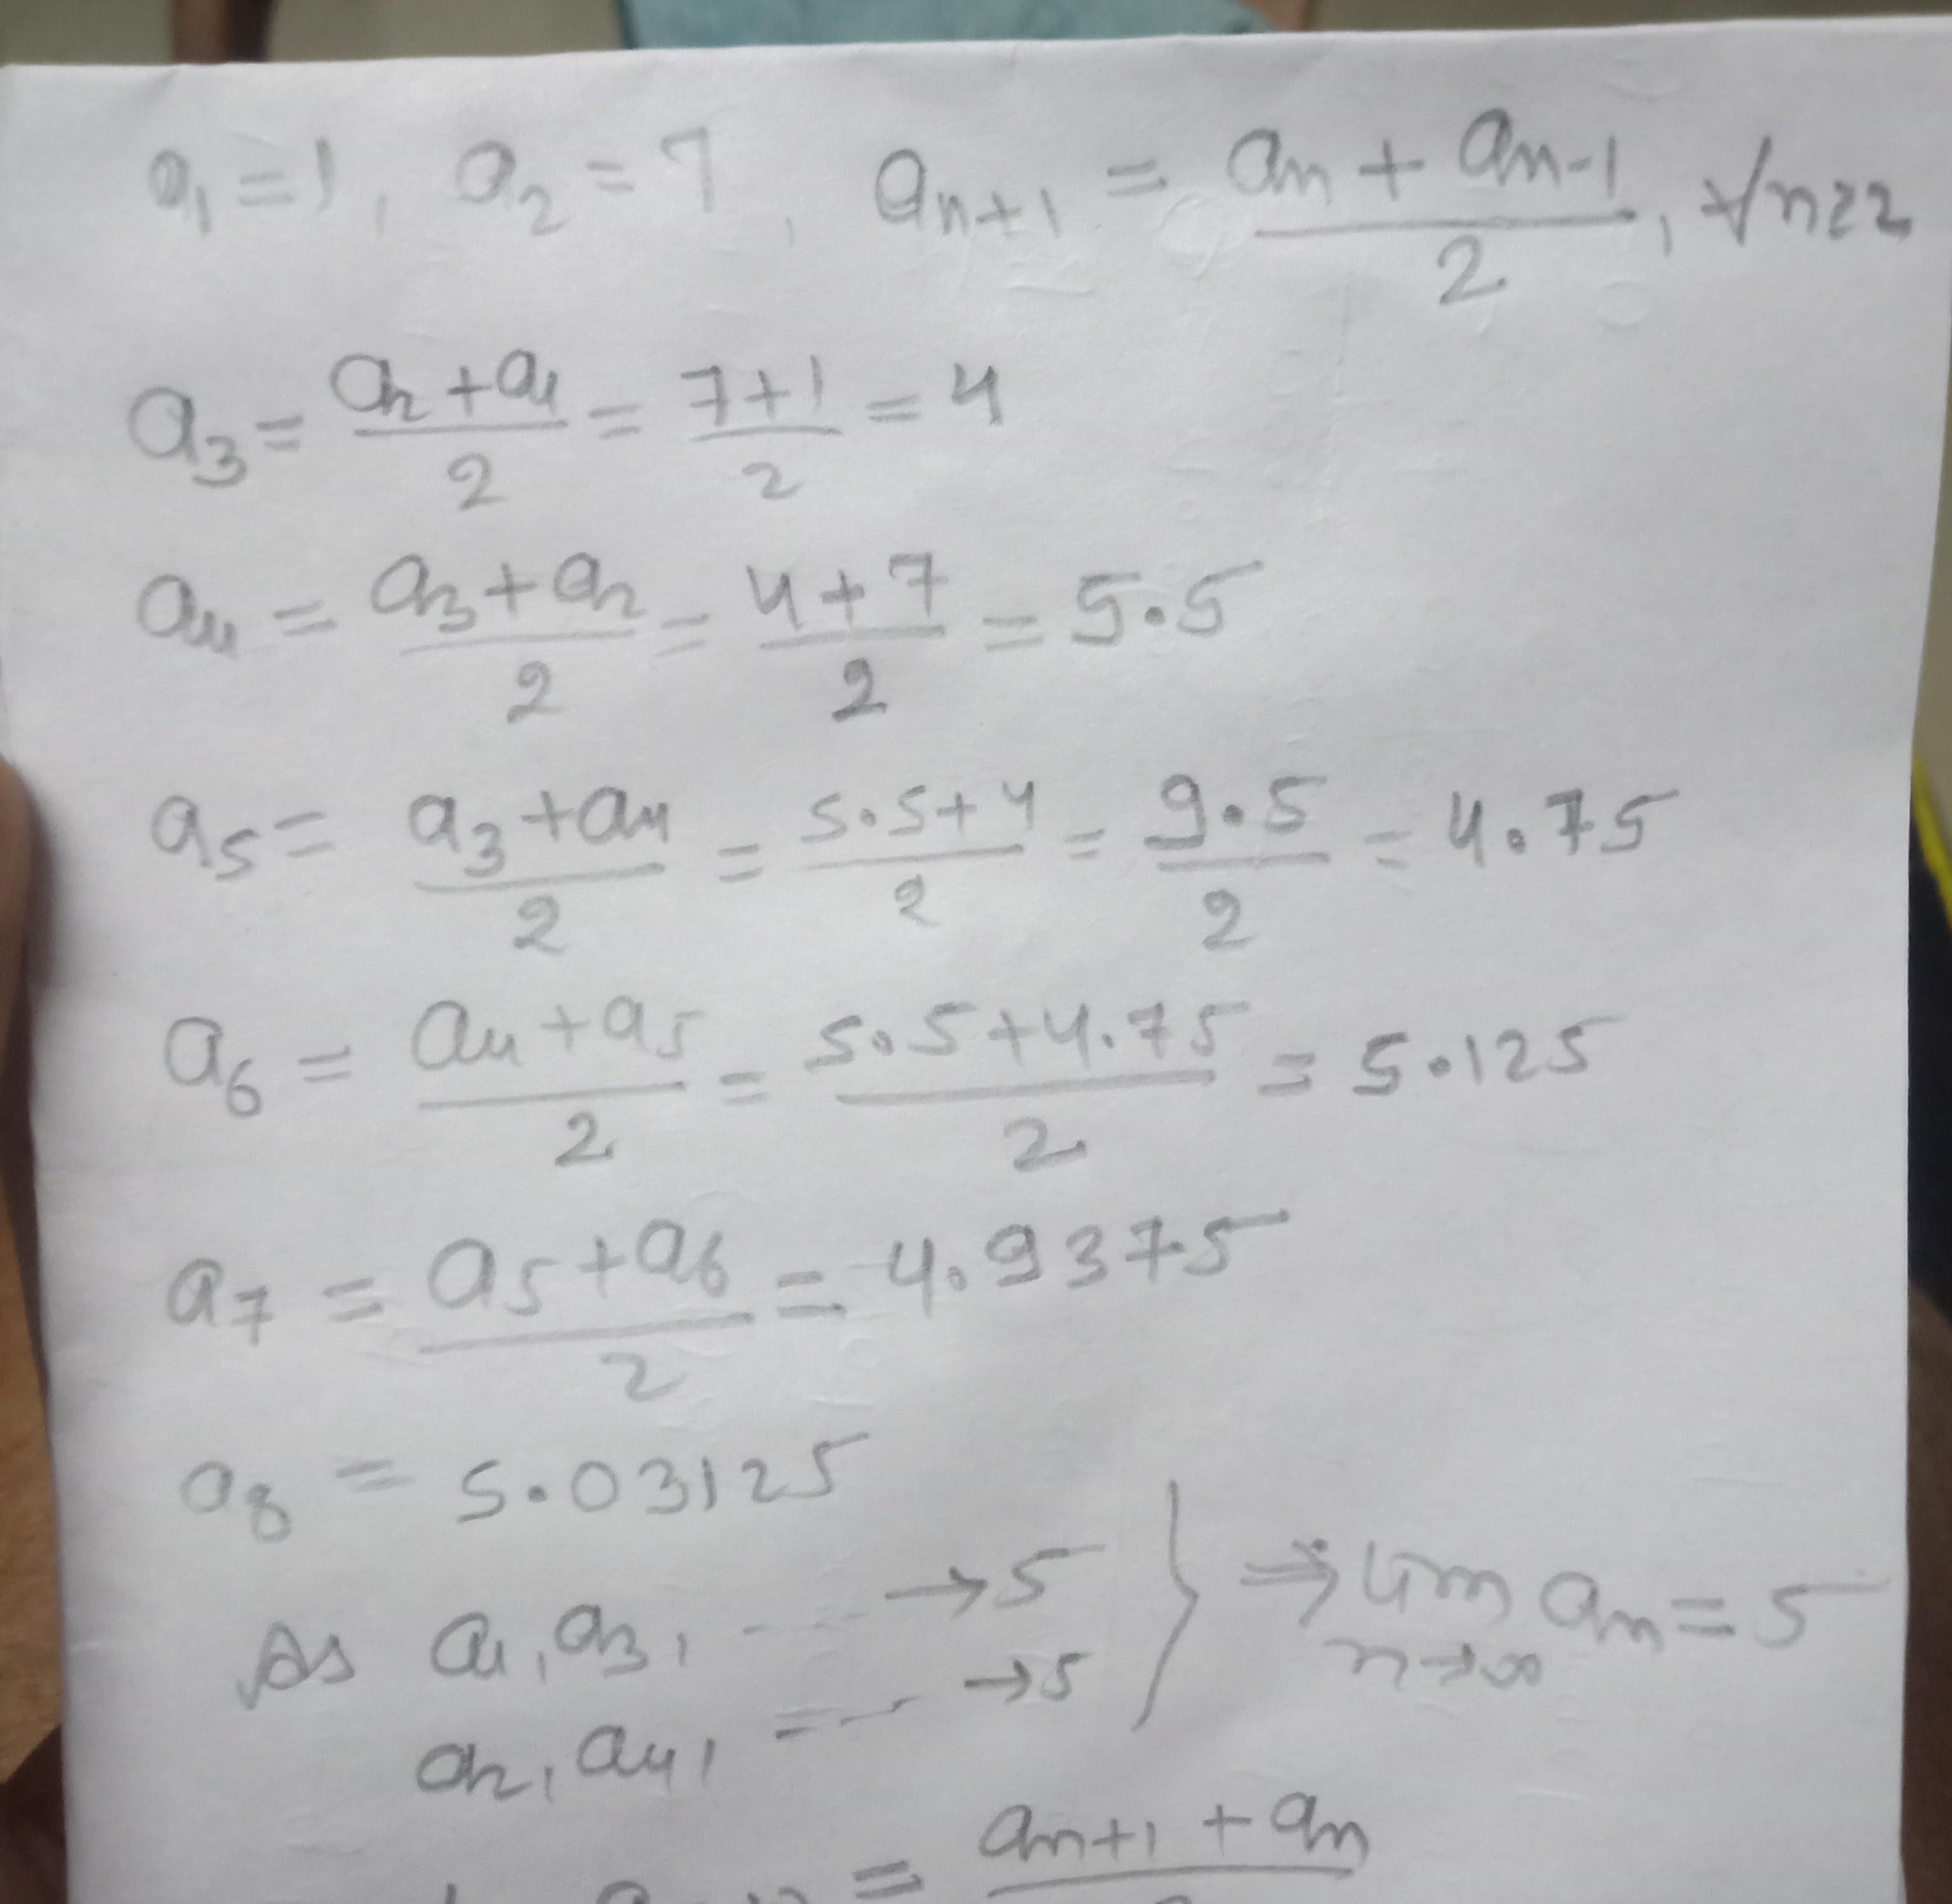 a₁ = 1, a₂ = 7, aₙ₊₁ = (aₙ + aₙ₋₁)/2, ∀n≥2
a₃ = (a₂ + a₁)/2 = (7+1)/2 = 4
a₄ = (a₃ + a₂)/2 = (4+7)/2 = 5.5
a₅ = (a₃ + a₄)/2 = (5.5+4)/2 = 9.5/2 = 4.75
a₆ = (a₄ + a₅)/2 = (5.5+4.75)/2 = 5.125
a₇ = (a₅ + a₆)/2 = 4.9375
a₈ = 5.03125
As a₁, a₃, --- → 5 } ⇒ lim n→∞ aₙ = 5
a₂, a₄, --- → 5
= aₙ₊₁ + aₙ